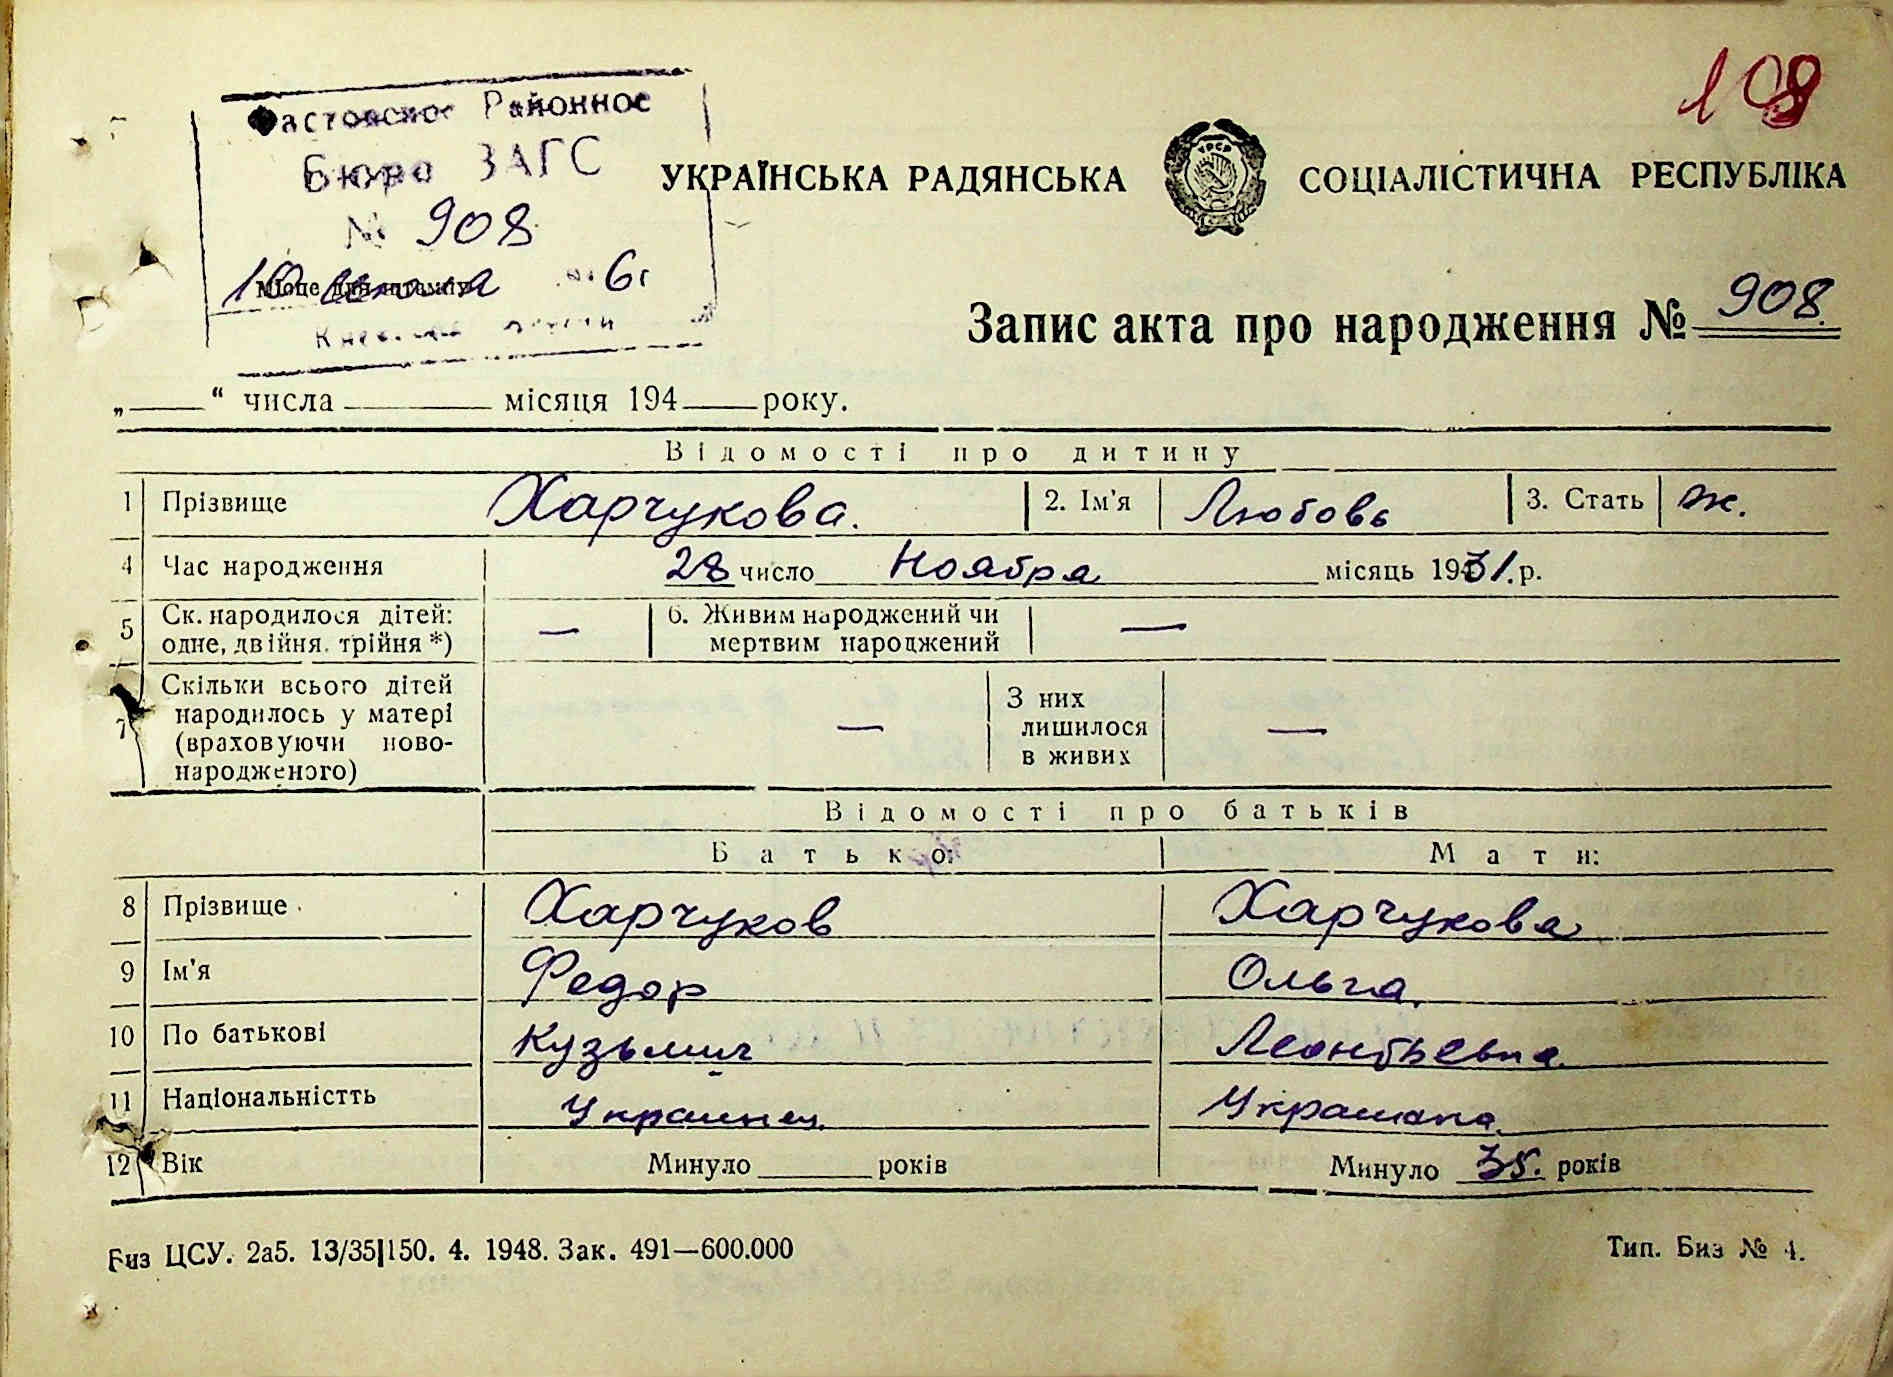 108
Фастовское Районное
Бюро ЗАГС
№ 908
УКРАЇНСЬКА РАДЯНСЬКА СОЦІАЛІСТИЧНА РЕСПУБЛІКА
УРСР
6г
Запис акта про народження № 908.
„ “ числа місяця 194 року.
Відомості про дитину
1 Прізвище Харчукова. 2. Ім'я Любовь 3. Стать ж.
4 Час народження 28 число Ноября місяць 1931. р.
5 Ск. народилося дітей: — 6. Живим народжений чи —
одне, двійня, трійня *) мертвим народжений
7 Скільки всього дітей З них
народилось у матері — лишилося —
(враховуючи ново- в живих
народженого)
Відомості про батьків
Батько: Мати:
8 Прізвище Харчуков Харчукова
9 Ім'я Федор Ольга.
10 По батькові Кузьмич Леонтьевна
11 Національністть Украинец. Украинка.
12 Вік Минуло років Минуло 35. років
Биз ЦСУ. 2а5. 13/35|150. 4. 1948. Зак. 491—600.000 Тип. Биз № 4.